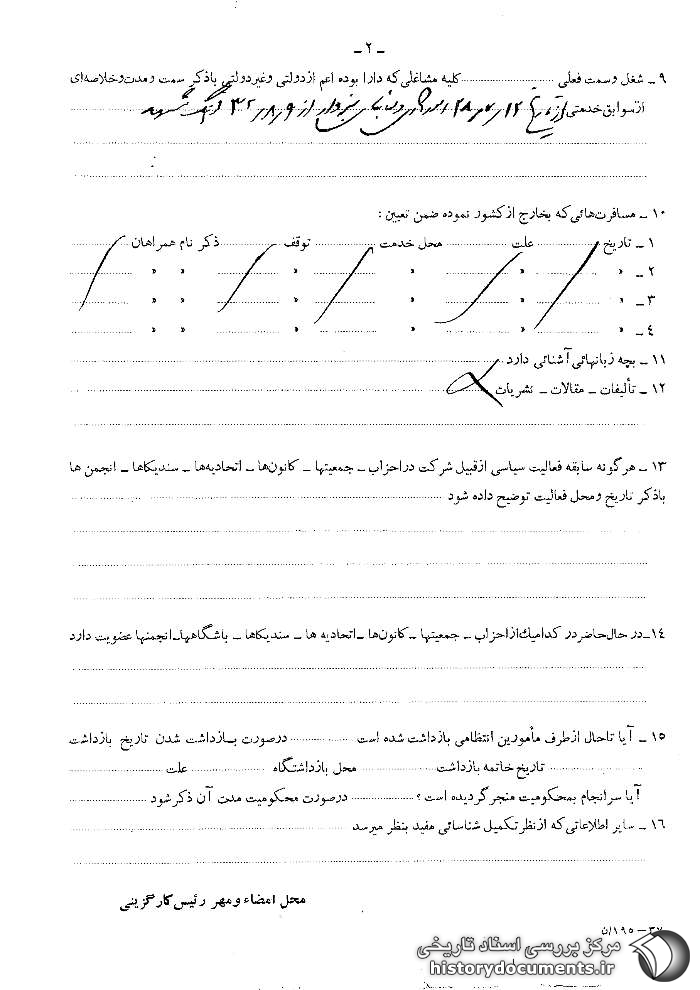 ـ ۲ ـ
۹ ـ شغل وسمت فعلی ........ کلیه مشاغلی که دارا بوده اعم ازدولتی وغیردولتی باذکر سمت ومدت‌وخلاصه‌ای
ازسوابق خدمتی از تاریخ ۲۸٫۷٫۱۲ از ۳۲٫۸٫۹
۱۰ ـ مسافرت‌هائی که بخارج ازکشور نموده ضمن تعیین :
۱ ـ تاریخ ........ علت ........ محل خدمت ........ توقف ........ ذکر نام همراهان ........
۲ ـ » ........ » ........ » ........ » ........ » » ........
۳ ـ » ........ » ........ » ........ » ........ » » ........
٤ ـ » ........ » ........ » ........ » ........ » » ........
۱۱ ـ بچه زبانهائی آشنائی دارد ........
۱۲ ـ تألیفات ـ مقالات ـ نشریات ........
۱۳ ـ هرگونه سابقه فعالیت سیاسی ازقبیل شرکت دراحزاب ـ جمعیتها ـ کانون‌ها ـ اتحادیه‌ها ـ سندیکاها ـ انجمن ها
باذکر تاریخ ومحل فعالیت توضیح داده شود ........
۱٤ـ در حال‌حاضردر کدامیك‌ازاحزاب ـ جمعیتها ـ کانون‌ها ـ اتحادیه ها ـ سندیکاها ـ باشگاهها ـ انجمنها عضویت دارد
۱۵ ـ آیا تاحال ازطرف مأمورین انتظامی بازداشت شده است ........ درصورت بازداشت شدن تاریخ بازداشت
........ تاریخ خاتمه بازداشت ........ محل بازداشتگاه ........ علت ........
آیا سرانجام بمحکومیت منجرگردیده است ؟ ........ درصورت محکومیت مدت آن ذکرشود ........
۱٦ ـ سایر اطلاعاتی که ازنظرتکمیل شناسائی مفید بنظر میرسد ........
محل امضاء ومهر رئیس کارگزینی
۳۷ ـ ۱۹۵/ن
مرکز بررسی اسناد تاریخی
historydocuments.ir